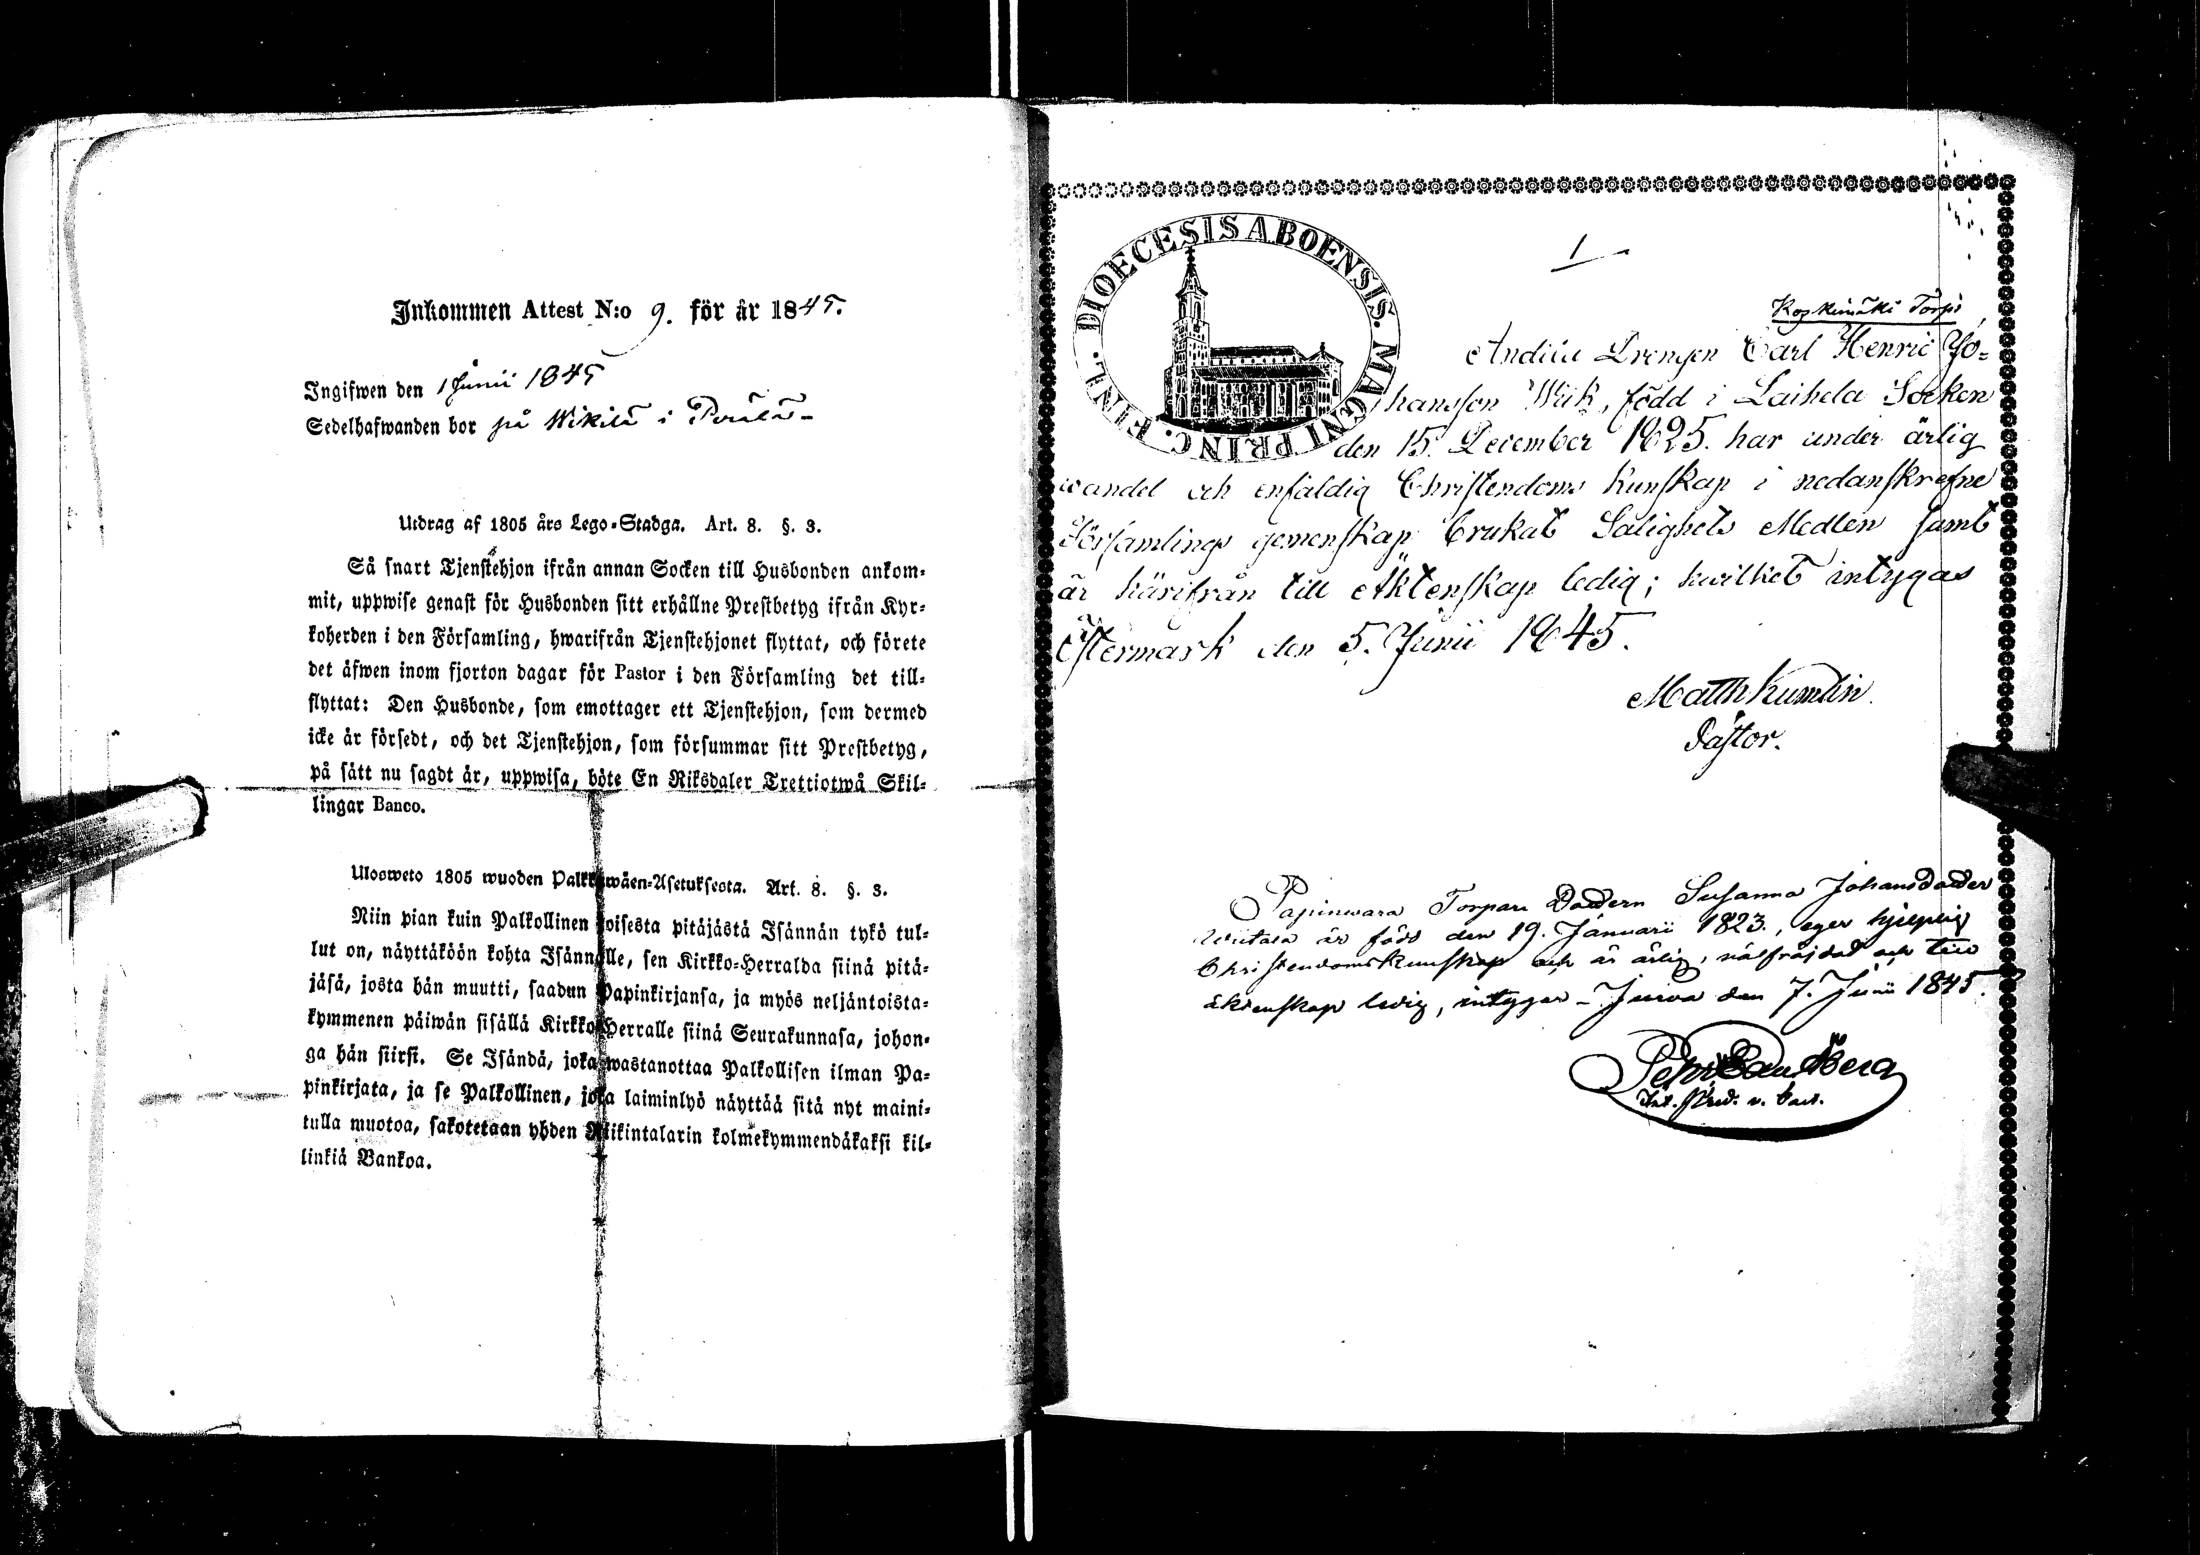 Inkommen Attest N:o 9. för år 1845.
Ingifwen den 1 Junii 1845
Sedelhafwanden bor på Wikila i
Utdrag af 1805 års Lego-Stadga. Art. 8. §. 3.
Så snart Tjenstehjon ifrån annan Socken till Husbonden ankom-
mit, uppwise genast för Husbonden sitt erhållne Prestbetyg ifrån Kyr-
koherden i den Församling, hwarifrån Tjenstehjonet flyttat, och förete
det äfwen inom fjorton dagar för Pastor i den Församling det till-
flyttat: Den Husbonde, som emottager ett Tjenstehjon, som dermed
icke är försedt, och det Tjenstehjon, som försummar sitt Prestbetyg,
på sätt nu sagdt är, uppwisa, böte En Riksdaler Trettiotwå Skil-
lingar Banco.
Ulosweto 1805 wuoden Palkkawäen-Asetuksesta. Art. 8. §. 3.
Niin pian kuin Palkollinen toisesta pitäjästä Isännän tykö tul-
lut on, näyttäköön kohta Isännälle, sen Kirkko-Herralda siinä pitä-
jäsä, josta hän muutti, saadun Papinkirjansa, ja myös neljäntoista-
kymmenen päiwän sisällä Kirkko-Herralle siinä Seurakunnasa, johon-
ga hän siirsi. Se Isändä, joka wastanottaa Palkollisen ilman Pa-
pinkirjata, ja se Palkollinen, joka laiminlyö näyttää sitä nyt maini-
tulla muotoa, sakotetaan yhden Riikintalarin kolmekymmendäkaksi kil-
linkiä Bankoa.
DIOECESIS ABOENSIS. MAGNI PRINC. FINL.
1
Koskimäki Torp
Drengen Carl Henric Jo-
hansson Wiik, född i Laihela Socken
den 15. December 1825. har under ärlig
wandel och enfaldig Christendoms Kunskap i nedanskrefne
Församlings gemenskap brukat Salighets Medlen samt
är härifrån till Äktenskap ledig; hwilket intygas
Östermark den 5. Junii 1845.
Matth Kumlin
Pastor.
Torpare Dottern Susanna Johansdotter
är född den 19. Januarii 1823., eger hjelplig
Christendomskunskap och är ärlig, wälfräjdad och till
äktenskap ledig, intygar - Jurva den 7. Junii 1845.
Pehr Sandberg